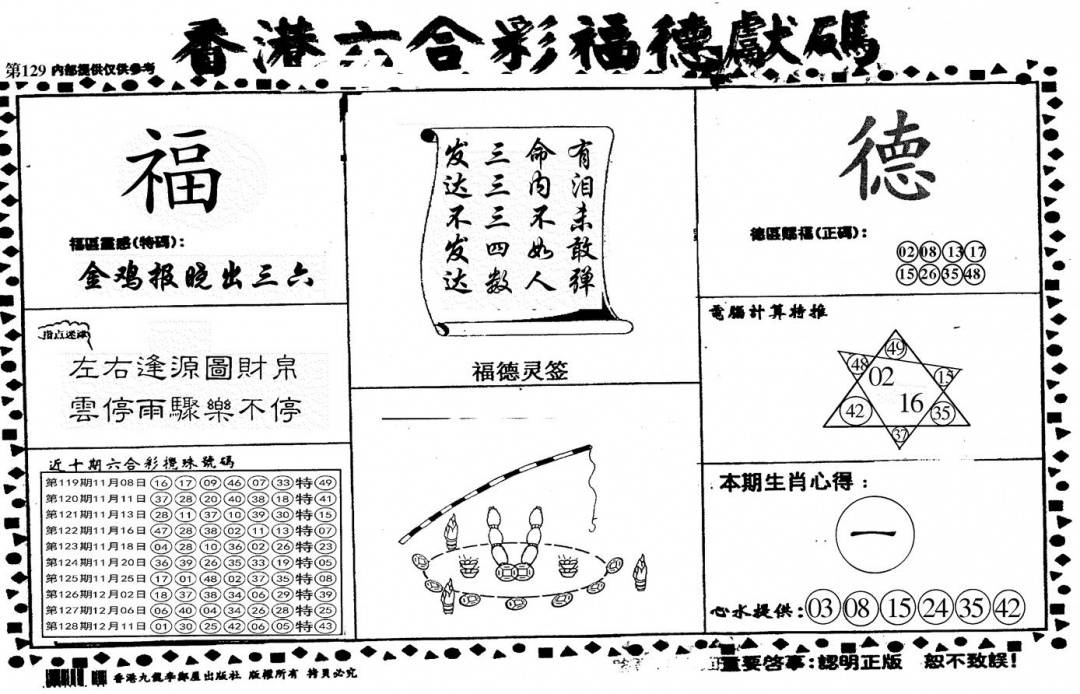 香港六合彩福德獻碼
第129 内部提供仅供参考
福
福區靈感(特碼):
金鸡报晓出三六
指点迷津
左右逢源圖財帛
雲停雨驟樂不停
近十期六合彩攪珠號碼
第119期11月08日 16 17 09 46 07 33 特 49
第120期11月11日 37 28 20 40 38 18 特 41
第121期11月13日 28 11 37 10 39 30 特 15
第122期11月16日 47 28 38 02 11 13 特 07
第123期11月18日 04 28 10 36 02 26 特 23
第124期11月20日 36 39 26 35 33 19 特 05
第125期11月25日 17 01 48 02 37 35 特 08
第126期12月02日 18 37 38 34 06 29 特 39
第127期12月06日 06 40 04 34 26 28 特 25
第128期12月11日 01 30 25 42 06 05 特 43
有泪未敢弹
命内不如人
三三三四数
发达不发达
福德灵签
德
德區賜福(正碼):
02 08 13 17
15 26 35 48
電腦計算特推
49
48 02 15
42 16 35
37
本期生肖心得:
一
心水提供:03 08 15 24 35 42
重要啓事:認明正版 恕不致誤!
香港九龍李鄭屋出版社 版權所有 拷貝必究